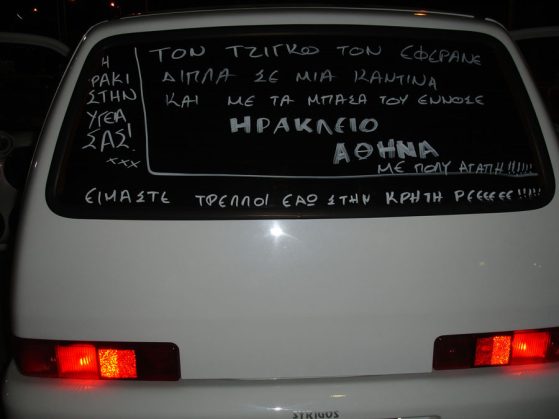 Η
ΡΑΚΙ
ΣΤΗΝ
ΥΓΕΑ
ΣΑΣ!
xxx
ΤΟΝ ΤΖΙΓΚΟ ΤΟΝ ΕΦΕΡΑΝΕ
ΔΙΠΛΑ ΣΕ ΜΙΑ ΚΑΝΤΙΝΑ
ΚΑΙ ΜΕ ΤΑ ΜΠΑΣΑ ΤΟΥ ΕΝΝΟΣΕ
ΗΡΑΚΛΕΙΟ
ΑΘΗΝΑ
ΜΕ ΠΟΛΥ ΑΓΑΠΗ!!!!!!
ΕΙΜΑΣΤΕ ΤΡΕΛΛΟΙ ΕΔΩ ΣΤΗΝ ΚΡΗΤΗ ΡΕΕΕΕΕΕ!!!!!
SYRIGOS